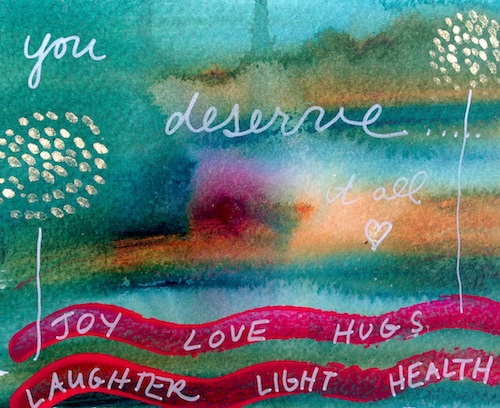 you
deserve.....
it all
JOY LOVE HUGS
LAUGHTER LIGHT HEALTH